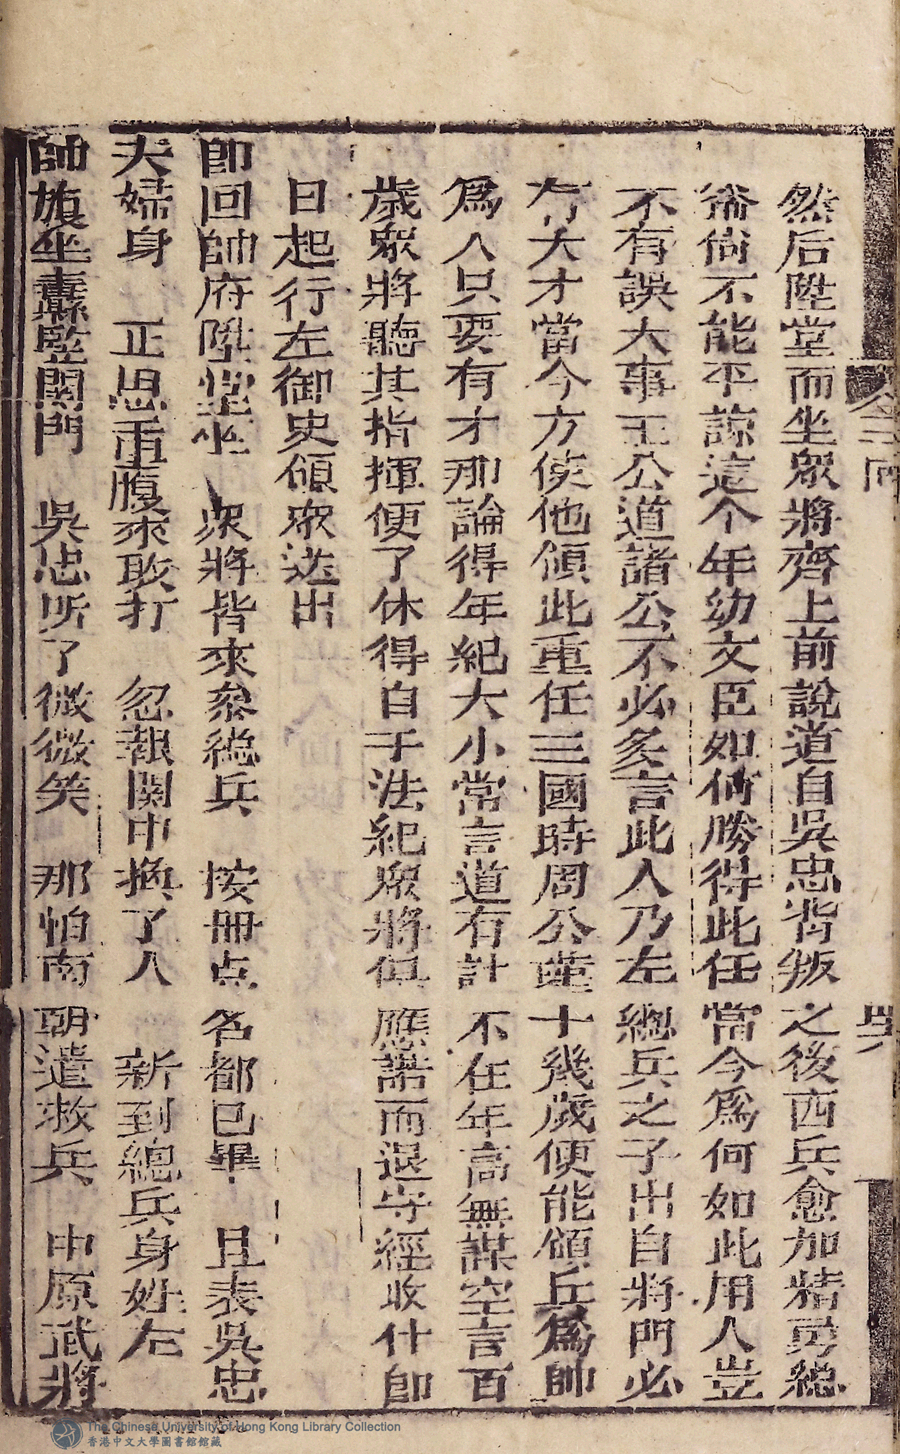 然后陞堂而坐眾將齊上前說道自吳忠背叛之後西兵愈加精勇總
猶尚不能平諒這个年幼文臣如何勝得此任當今為何如此用人豈
不有誤大事王公道諸公不必多言此人乃左總兵之子出自將門必
有大才當今方使他領此重任三國時周公瑾十幾歲便能領兵為帥
為人只要有才那論得年紀大小常言道有計不在年高無謀空言百
歲眾將聽其指揮便了休得自于法紀眾將俱應諾而退守經收什即
日起行左御史領眾送出
即回帥府陞堂坐 眾將皆來參總兵 按冊点名都已畢 且表吳忠
夫婦身 正思重履來敢打 忽報関中換了人 新到總兵身姓左
帥旗坐纛縣監関門 吳忠听了微微笑 那怕南朝遣救兵 中原武將
The Chinese University of Hong Kong Library Collection
香港中文大學圖書館館藏